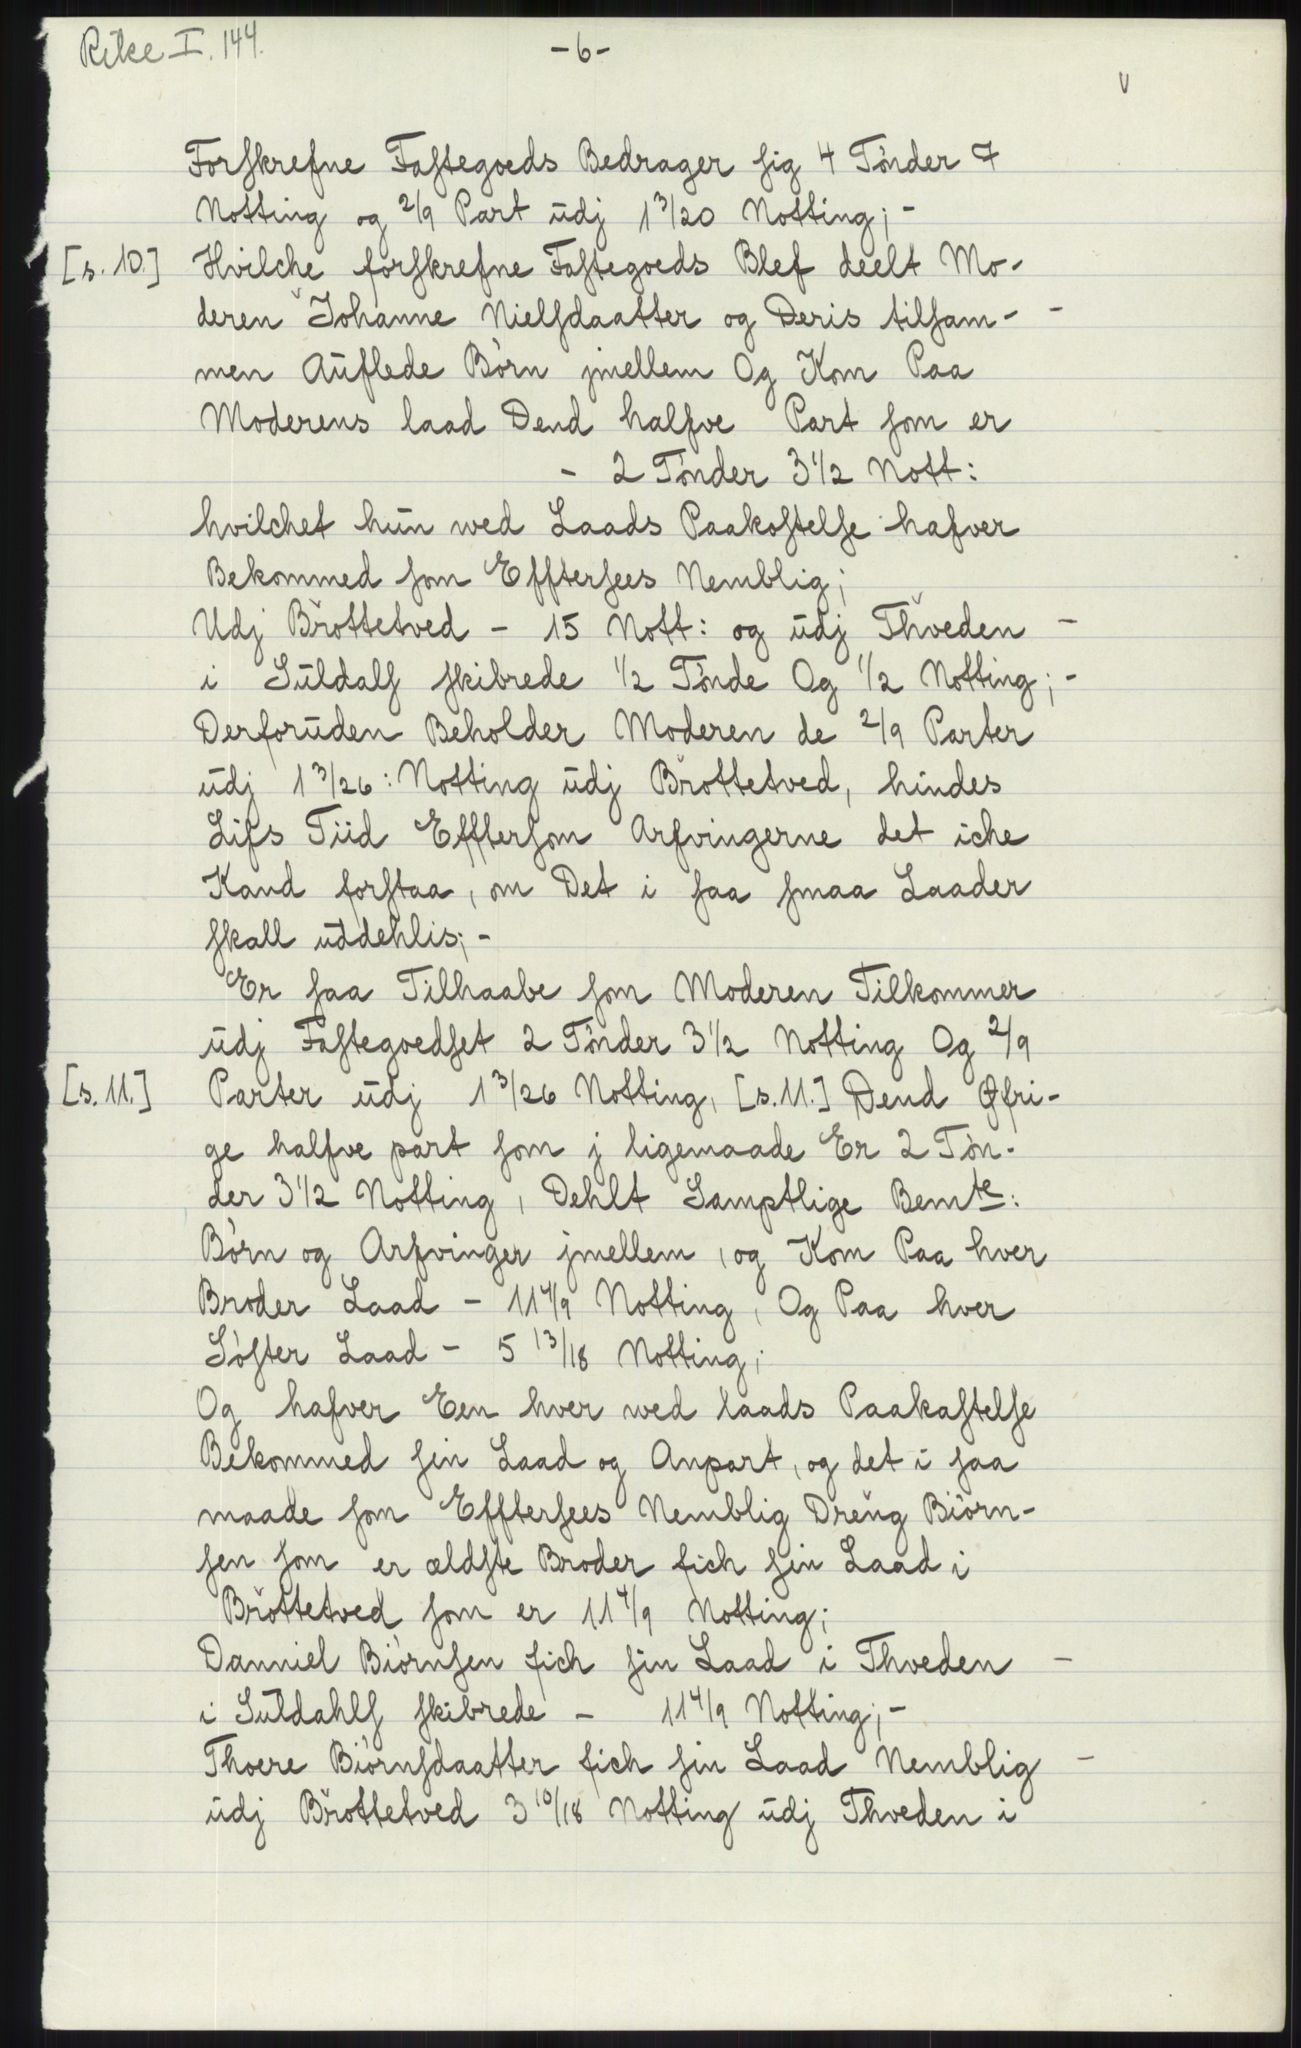 Rike I. 144.
-6-
Forskrefne Fastegoeds Bedrager sig 4 Tønder 7
Notting og 2/9 Part udj 1 3/20 Notting; -
[s. 10.] Hvilche forskrefne Fastegoeds Blef deelt Mo-
deren Johanne Nielsdaatter og Deris tilsam- -
men Auflede Børn jmellem Og Kom Paa
Moderens laad Dend halfve Part som er
- 2 Tønder 3 1/2 Nott:
hvilchet hun wed Laads Paakostelse hafver
Bekommed som Efftersees Nemblig;
Udj Brottetved - 15 Nott: og udj Thveden -
i Suldals skibrede 1/2 Tønde Og 1/2 Notting; -
Derforuden Beholder Moderen de 2/9 Parter
udj 1 3/26: Notting udj Brottetved, hindes
Lifs Tiid Efftersom Arfvingerne det iche
Kand forstaa, om Det i saa smaa Laader
skall uddehlis; -
Er saa Tilhaabe som Moderen Tilkommer
udj Fastegoedset 2 Tønder 3 1/2 Notting Og 2/9
[s. 11.] Parter udj 1 3/26 Notting, [s. 11.] Dend Øfri-
ge halfve part som j ligemaade Er 2 Tøn-
der 3 1/2 Notting, Dehlt Samptlige Bemte:
Børn og Arfvinger jmellem, og Kom Paa hver
Broder Laad - 11 4/9 Notting, Og Paa hver
Søster Laad - 5 13/18 Notting;
Og hafver Een hver wed laads Paakastelse
Bekommed sin Laad og Anpart, og det i saa
maade som Efftersees Nemblig Dreug Biørn-
sen som er ældste Broder fich sin Laad i
Brottetved som er 11 4/9 Notting;
Danniel Biørnsen fich sin Laad i Thveden -
i Suldahls skibrede - 11 4/9 Notting; -
Thoere Biørnsdaatter fich sin Laad Nemblig -
udj Brottetved 3 10/18 Notting udj Thveden i